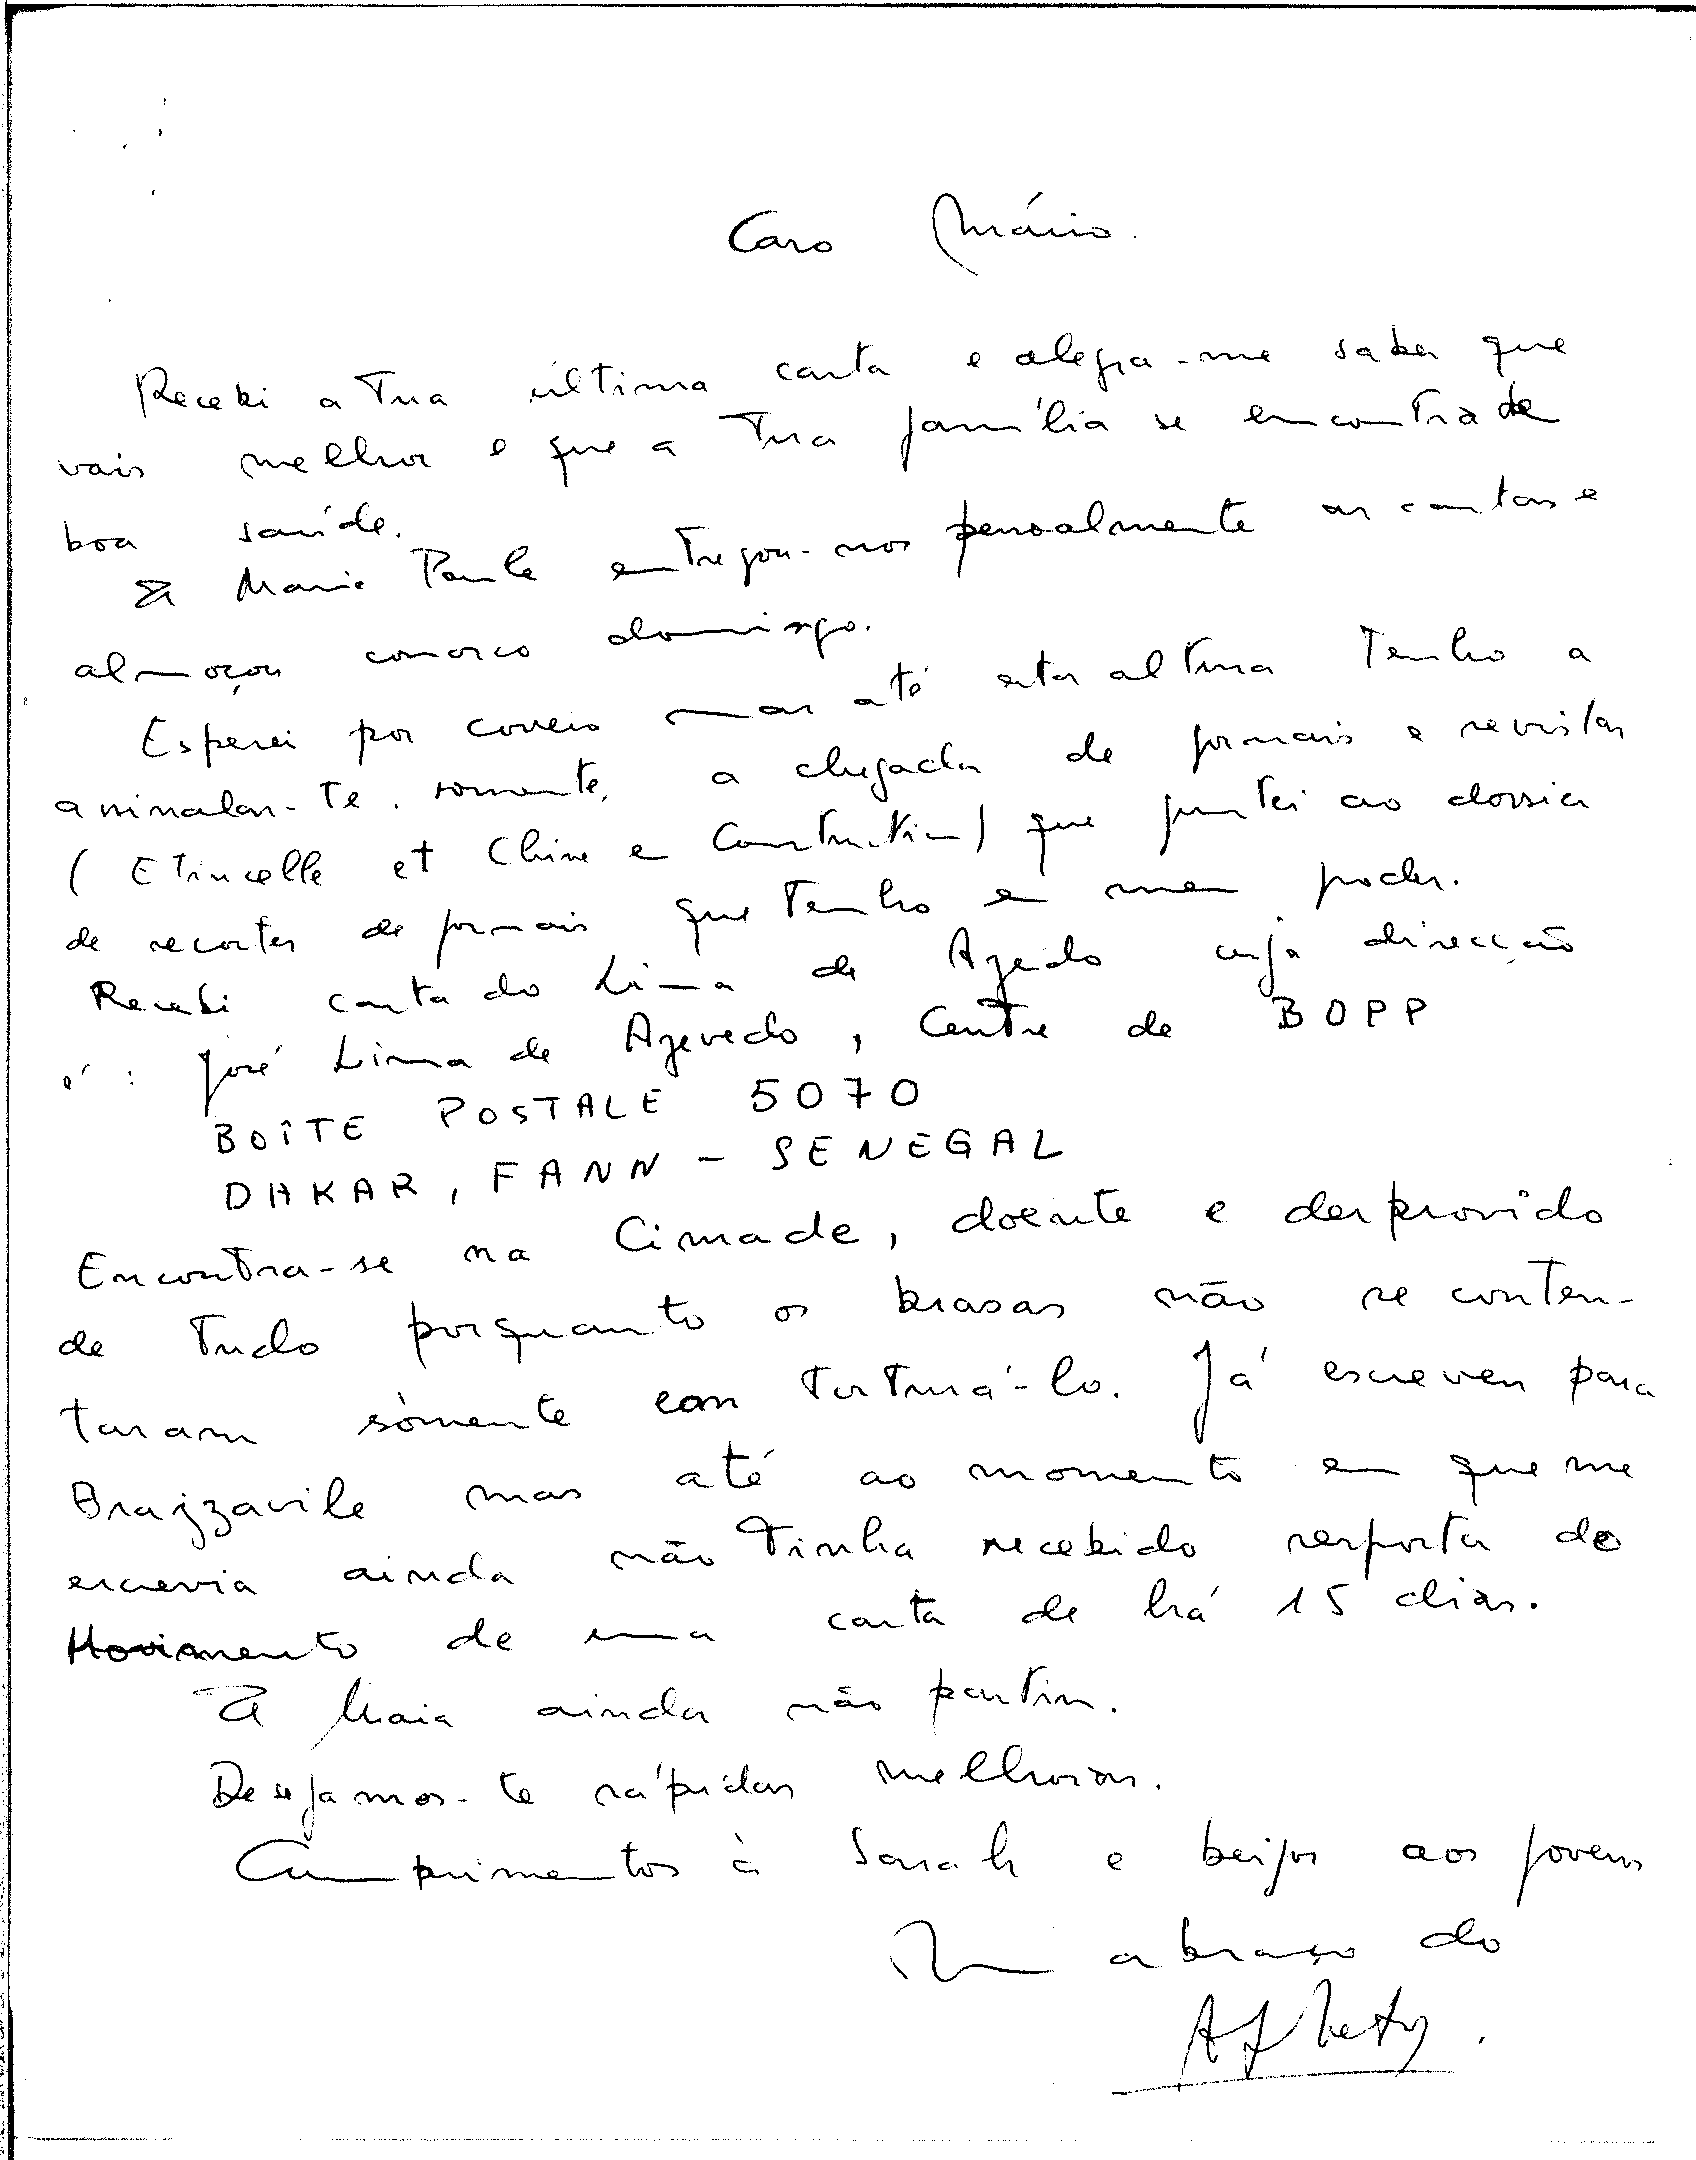 Caro Mário.
Recebi a tua última carta e alegra-me saber que
vais melhor e que a tua família se encontra de
boa saúde.
A Marie Paule entregou-nos pessoalmente as cartas e
almoçou conosco domingo.
Esperei por correio mas até esta altura tenho a
assinalar-te, somente, a chegada de jornais e revistas
( Etincelle et Chine en Construction ) que juntei ao dossier
de recortes de jornais que tenho em meu poder.
Recebi carta do Lima de Azevedo cuja direcção
é : José Lima de Azevedo, Centre de BOPP
BOÎTE POSTALE 5070
DAKAR, FANN - SENEGAL
Encontra-se na Cimade, doente e desprovido
de tudo porquanto os brasas não se conten-
taram sòmente com torturá-lo. Já escreveu para
Brazzavile mas até ao momento em que me
escrevia ainda não tinha recebido resposta do
Movimento de uma carta de há 15 dias.
A Maia ainda não partiu.
Desejamos-te rápidas melhoras.
Cumprimentos à Sarah e beijos aos jovens
Um abraço do